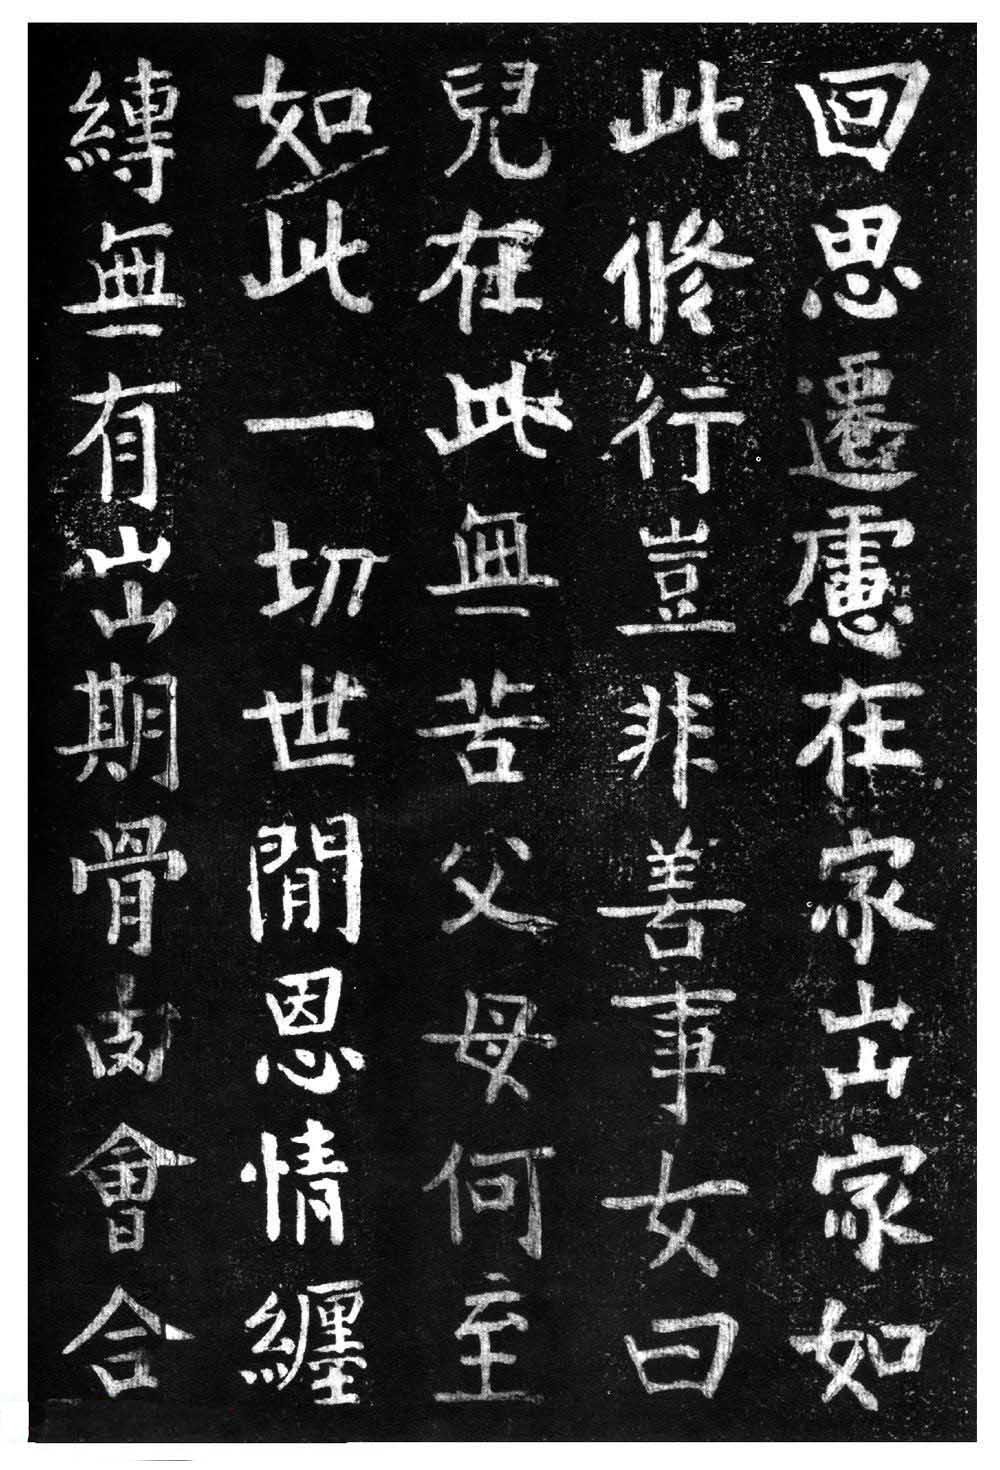 回思遷慮在家出家如
此修行豈非善事女曰
兒在此無苦父母何至
如此一切世閒恩情纏
縛無有出期骨肉會合